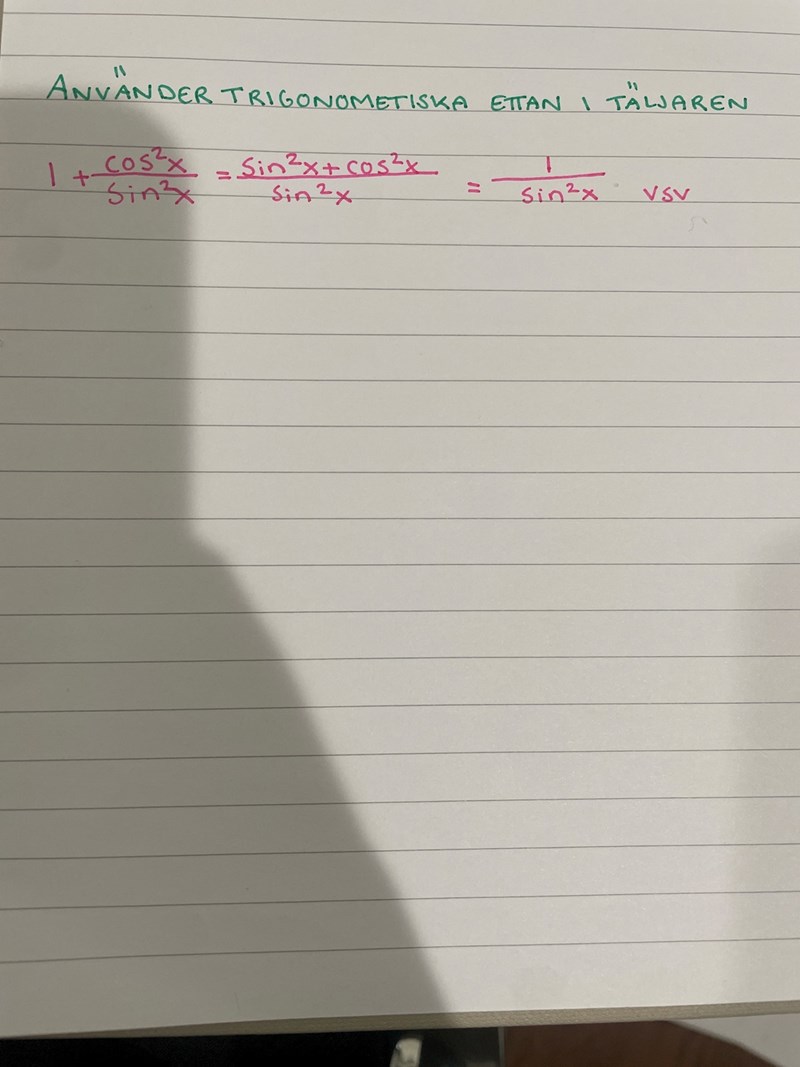 ANVÄNDER TRIGONOMETISKA ETTAN I TÄLJAREN
1 + cos²x/sin²x = sin²x+cos²x/sin²x = 1/sin²x VSV